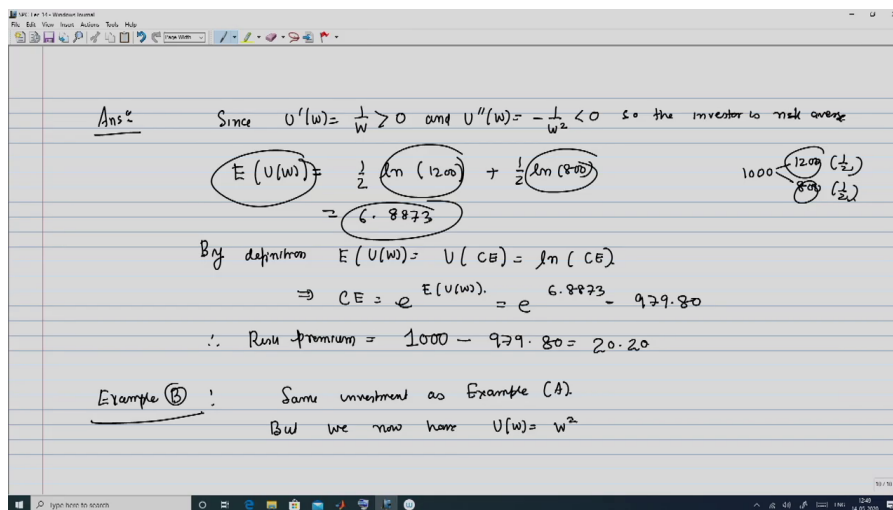 SPC Lec 14 - Windows Journal
File Edit View Insert Actions Tools Help
Page Width
Ans:
Since U'(W) = 1/W > 0 and U''(W) = - 1/W² < 0 so the investor is risk averse
E(U(W)) = 1/2 ln(1200) + 1/2 ln(800)
1000 1200 (1/2)
800 (1/2)
= 6.8873
By definition E(U(W)) = U(CE) = ln(CE).
⇒ CE = e^E(U(W)). = e^6.8873 - 979.80
∴ Risk premium = 1000 - 979.80 = 20.20
Example (B) : Same investment as Example (A).
But we now have U(W) = W²
10 / 10
Type here to search
ENG
12:48
14-05-2020